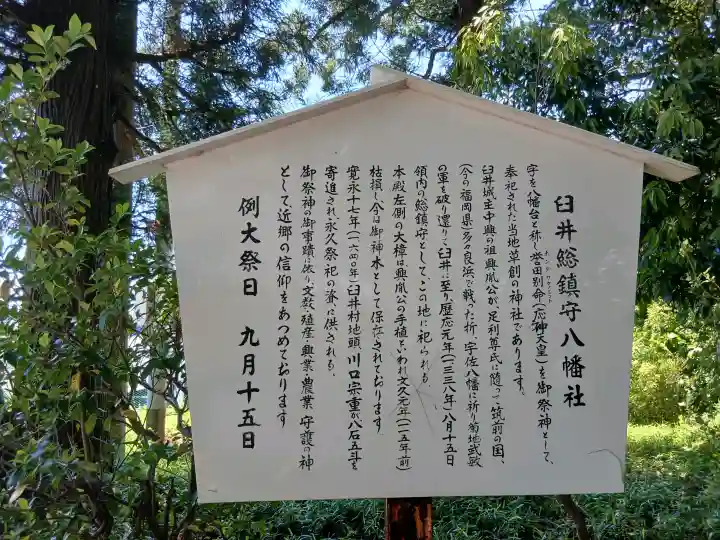 臼井総鎮守八幡社
字を八幡台と称し誉田別命(応神天皇)を御祭神として、
奉祀された当地草創の神社であります。
臼井城主中興の祖興胤公が、足利尊氏に随って筑前の国、
(今の福岡県)多々良浜で戦った折、宇佐八幡に祈り菊地武敏
の軍を破り還りて臼井に至り歴応元年(一三三八年)八月十五日
領内の総鎮守として、この地に祀られる。
本殿左側の大樟は興胤公の手植といわれ文久元年(一一五年前)
枯損し今は御神木として保存されております。
寛永十七年(一六四〇年)臼井村地頭、川口宗重が八石五斗を
寄進され、永久祭祀の資に供される。
御祭神の御事蹟に依り、文教・殖産・興業・農業・守護の神
として近郷の信仰をあつめております
例大祭日 九月十五日